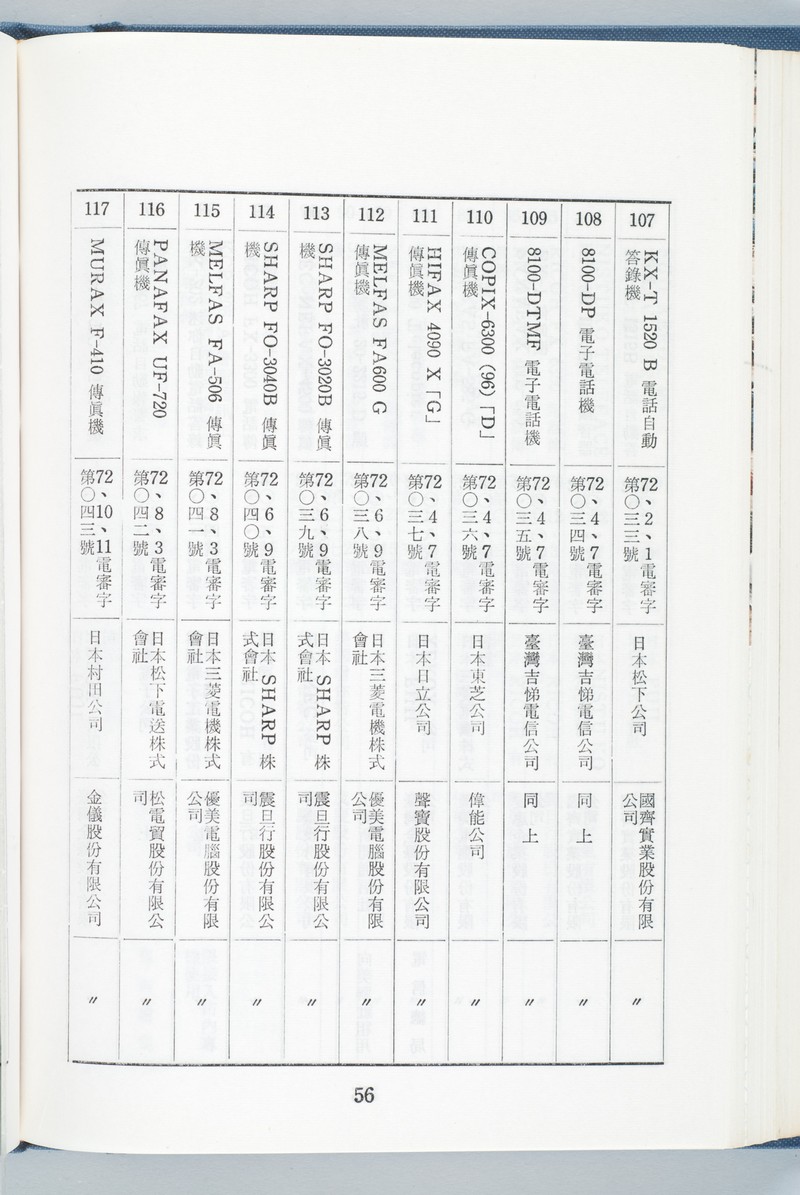 107
KX-T 1520 B 電話自動
答錄機
72、2、1電審字
第〇三三號
日本松下公司
國齊實業股份有限
公司
〃
108
8100-DP 電子電話機
72、4、7電審字
第〇三四號
臺灣吉悌電信公司
同上
〃
109
8100-DTMF 電子電話機
72、4、7電審字
第〇三五號
臺灣吉悌電信公司
同上
〃
110
COPIX-6300 (96)「D」
傳眞機
72、4、7電審字
第〇三六號
日本東芝公司
偉能公司
〃
111
HIFAX 4090 X「G」
傳眞機
72、4、7電審字
第〇三七號
日本日立公司
聲寶股份有限公司
〃
112
MELFAS FA600 G
傳眞機
72、6、9電審字
第〇三八號
日本三菱電機株式
會社
優美電腦股份有限
公司
〃
113
SHARP FO-3020B 傳眞
機
72、6、9電審字
第〇三九號
日本 SHARP 株
式會社
震旦行股份有限公
司
〃
114
SHARP FO-3040B 傳眞
機
72、6、9電審字
第〇四〇號
日本 SHARP 株
式會社
震旦行股份有限公
司
〃
115
MELFAS FA-506 傳眞
機
72、8、3電審字
第〇四一號
日本三菱電機株式
會社
優美電腦股份有限
公司
〃
116
PANAFAX UF-720
傳眞機
72、8、3電審字
第〇四二號
日本松下電送株式
會社
松電貿股份有限公
司
〃
117
MURAX F-410 傳眞機
72、10、11電審字
第〇四三號
日本村田公司
金儀股份有限公司
〃
56